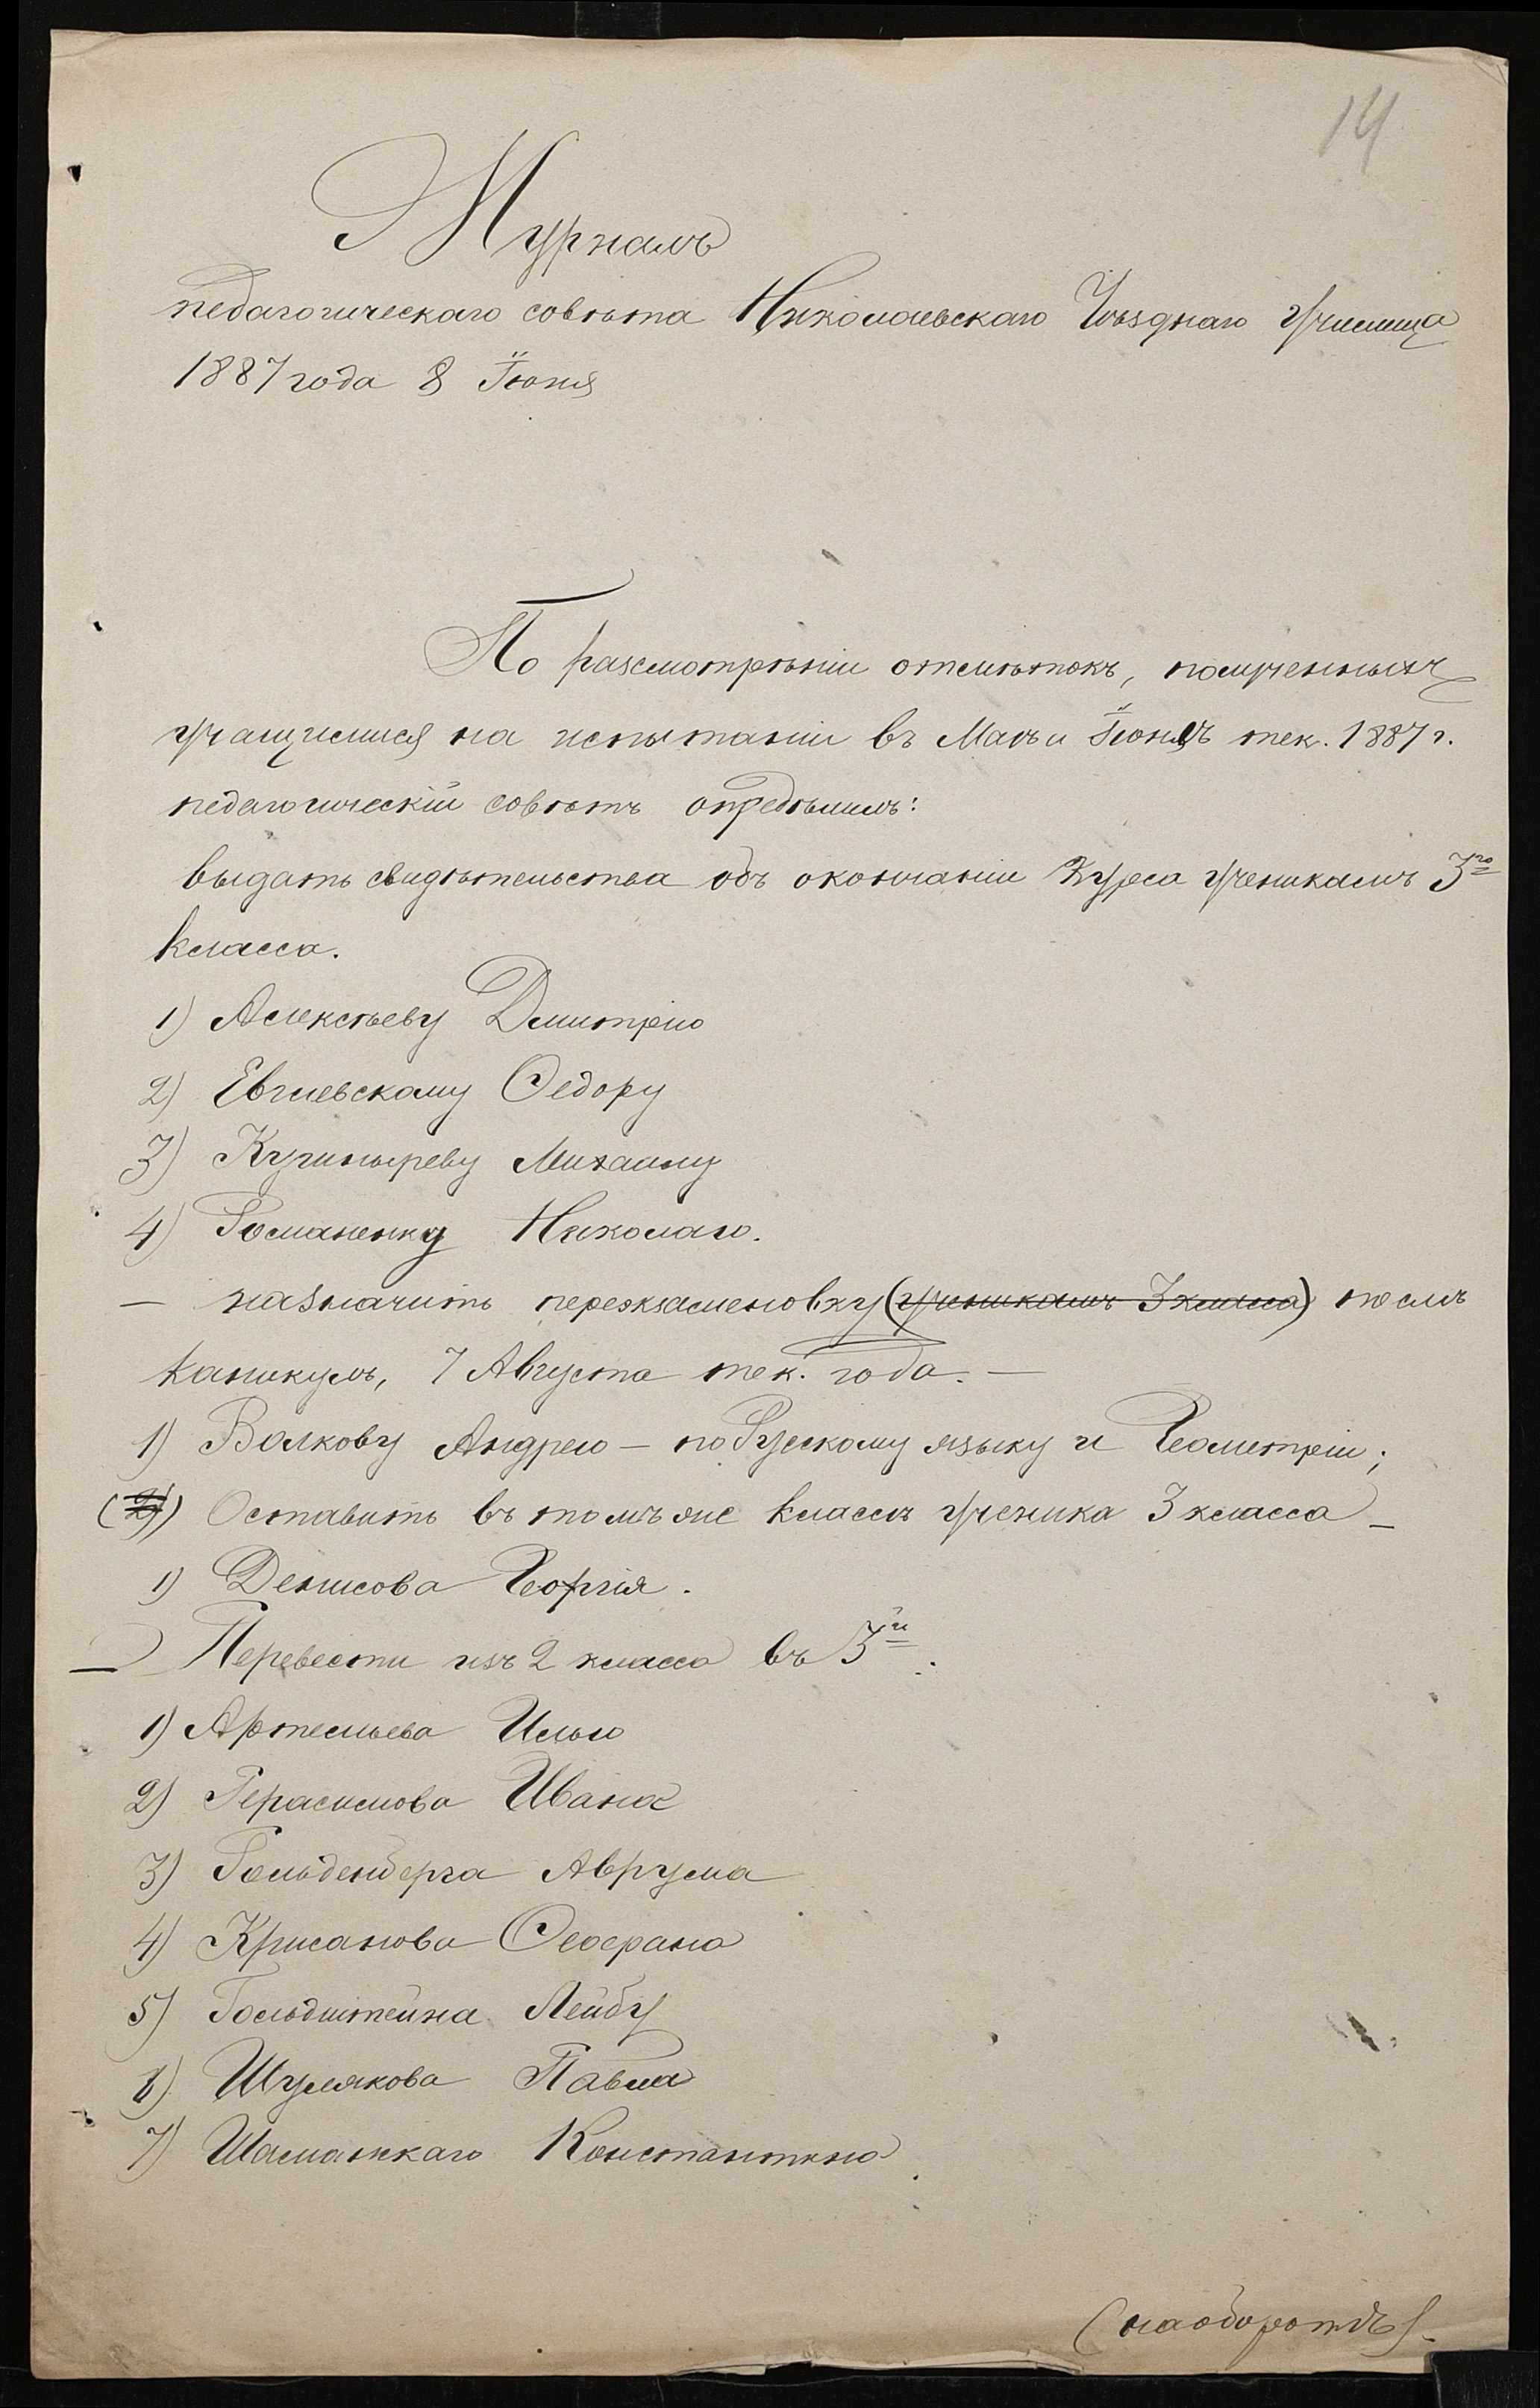 14
Журналъ
педагогическаго совѣта Николаевскаго Уѣзднаго Училища
1887 года 8 Іюня
По разсмотрѣніи отмѣтокъ, полученныхъ
учащимися на испытаніи въ Маѣ и Іюнѣ тек. 1887 г.
педагогическій совѣтъ опредѣлилъ:
выдать свидѣтельства объ окончаніи курса ученикамъ 3го
класса.
1) Алексѣеву Дмитрію
2) Евгіевскому Ѳедору
3) Кушныреву Михаилу
4) Романенку Николаю.
— назначить переэкзаменовку (ученикамъ 3 класса) послѣ
каникулъ, 7 Августа тек. года. —
1) Волкову Андрею — по Русскому языку и Геометріи;
(2)) Оставить въ томъ же классѣ ученика 3 класса —
1) Денисова Георгія.
— Перевести изъ 2 класса въ 3й:
1) Артемьева Илью
2) Герасимова Ивана
3) Гольденберга Аврума
4) Крисанова Ѳеофана
5) Гольдштейна Лейбу
6) Шулякова Павла
7) Шаманскаго Константина.
(на оборотѣ).